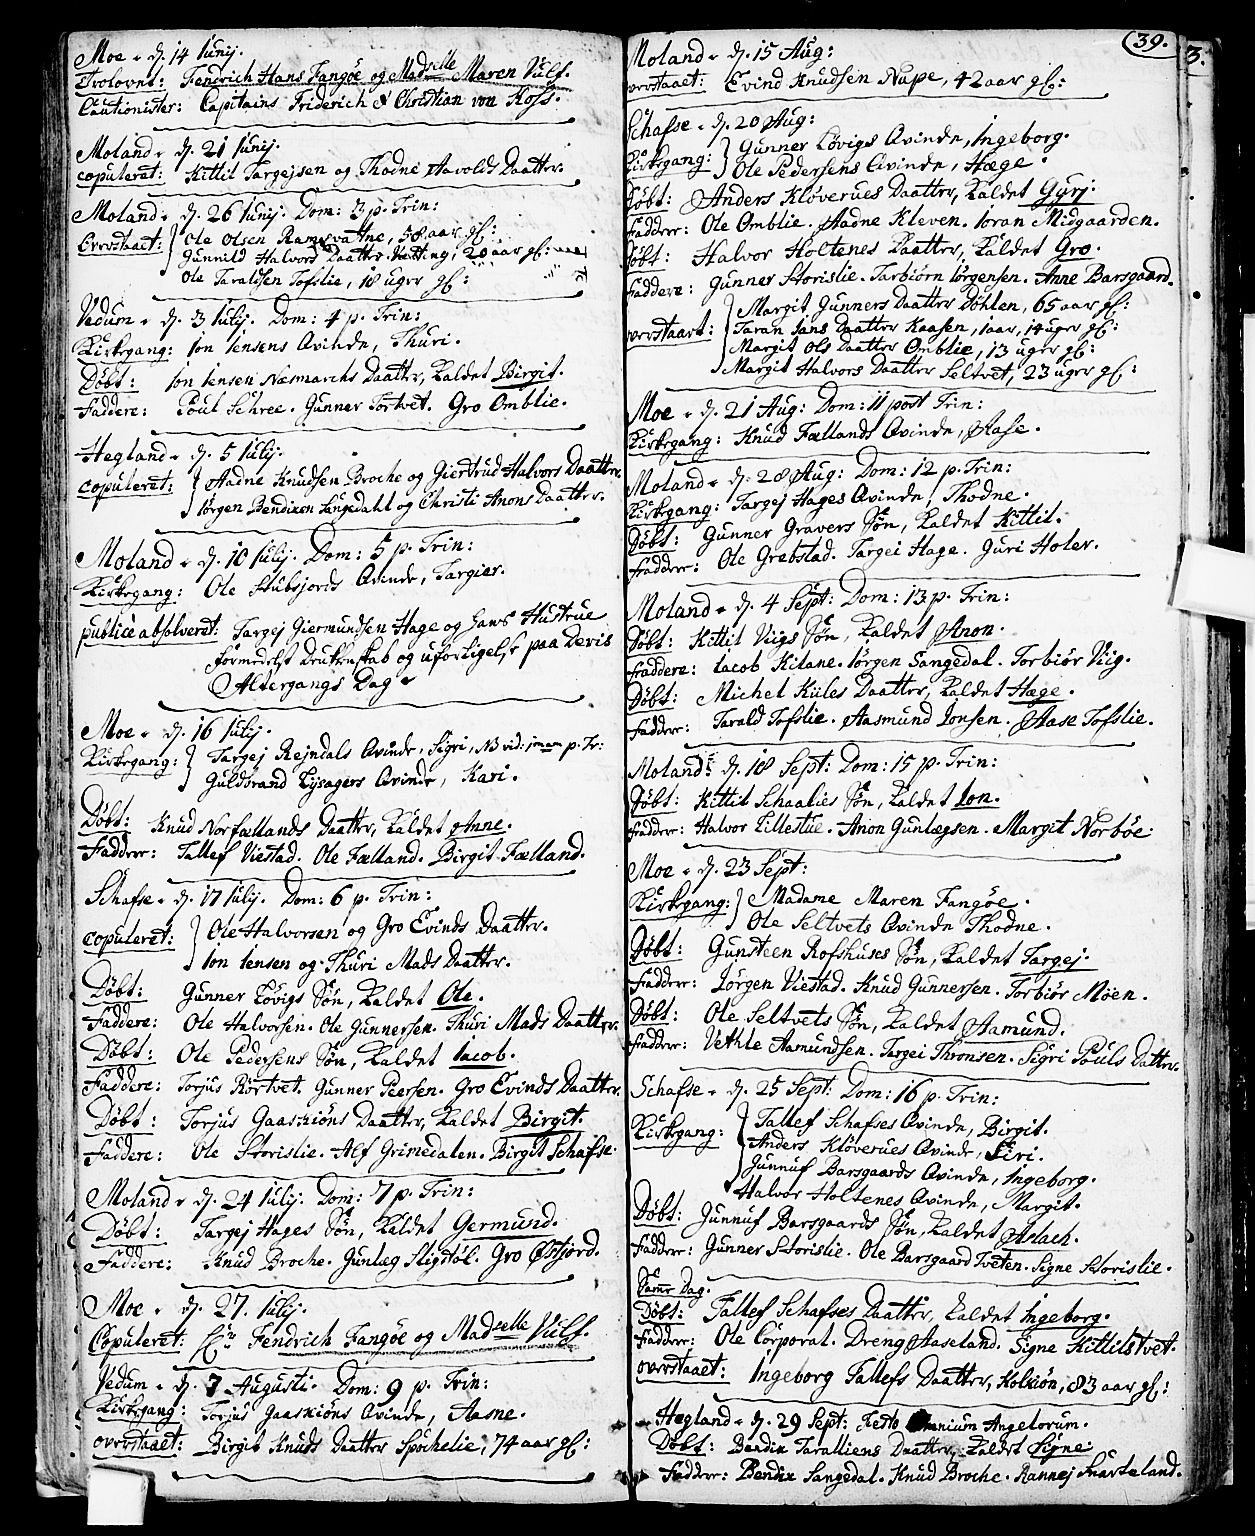 Moe d. 14 Iunij.
Trolovet: Fendrich Hans Fangøe og Madselle Maren Vulf.
Cautionister: Capitains Friderich & Christian von Koss.
Moland d. 21 Iunij.
copuleret: Kittil Targejsen og Thodne Aavolds Daatter.
Moland d. 26 Iunij. Dom: 3 p. Trin:
Overstaaet: Ole Olsen Ramsvatne, 58 aar gl:
Gunnild Halvors Daatter Vætting, 20 aar gl:
Ole Taraldsen Tofslie, 18 uger gl:
Vedum d. 3 Iulij. Dom: 4 p. Trin:
Kirkegang: Ion Iensens Qvinde, Thuri.
Døbt: Ion Iensen Næsmarchs Daatter, kaldet Birgit.
Faddere: Poul Schree. Gunner Tortvet. Gro Omblie.
Hegland d. 5 Iulij.
copuleret: Aadne Knudsen Broche og Giertrud Halvors Daatter.
Iørgen Bendixen Langedahl og Christi Anons Daatter.
Moland d. 10 Iulij. Dom: 5 p. Trin:
Kirkegang: Ole Stubsjords Qvinde, Targier.
publicè absolveret: Targej Giermundsen Hage og hans Hustrue
formedelst Drukenskab og uforligelse paa Deris
Altergangs Dag
Moe d. 16 Iulij.
Kirkegang: Targej Rejndals Qvinde, Sigri, NB vid: imam p. Tr:
Guldbrand Lysagers Qvinde, Kari.
Døbt: Knud Norfællands Daatter, kaldet Anne.
Faddere: Tallef Viestad. Ole Fælland. Birgit Fælland.
Schafse d. 17 Iulij. Dom: 6 p. Trin:
copuleret: Ole Halvorsen og Gro Evinds Daatter.
Ion Iensen og Thuri Mads Daatter.
Døbt: Gunner Løvigs Søn, kaldet Ole.
Faddere: Ole Halvorsen. Ole Gunnersen. Thuri Mads Daatter.
Døbt: Ole Pedersens Søn, kaldet Iacob.
Faddere: Torjus Rørtvet. Gunner Peersen. Gro Evinds Daatter.
Døbt: Torjus Gaaskiøns Daatter, kaldet Birgit.
Faddere: Ole Storislie. Alf Grimedalen. Birgit Schafse.
Moland d. 24 Iulij. Dom: 7 p. Trin:
Døbt: Targej Hages Søn, kaldet Germund.
Faddere: Knud Broche. Gunleg Sligstøl. Gro Østjord.
Moe d. 27. Iulij.
Copuleret: Hr. Fendrich Fangøe og Madselle Vulf.
Vedum d. 7 Augusti. Dom: 9 p. Trin:
Kirkegang: Torjus Gaaskiøns Qvinde, Aasne.
overstaaet: Birgit Knuds Daatter Spochelie, 74 aar gl:
39.
Moland d. 15 Aug:
overstaaet: Evind Knudsen Nupe, 42 aar gl:
Schafse d. 20 Aug:
Kirkegang: Gunner Løvigs Qvinde, Ingeborg.
Ole Pedersens Qvinde, Hæge.
Døbt: Anders Kløverues Daatter, kaldet Gyrj.
Faddere: Ole Omblie. Aadne Kleven. Ioran Midgaarden.
Døbt: Halvor Holtenes Daatter, kaldet Gro.
Faddere: Gunner Storislie. Tarbiørn Iørgensen. Anne Barsgaard.
overstaaet: Margit Gunners Daatter Døhlen, 65 aar gl:
Taran Ians Daatter Kaasen, 1 aar, 14 uger gl:
Margit Ols Daatter Omblie, 13 uger gl:
Margit Halvors Daatter Seltvet, 23 uger gl:
Moe d. 21 Aug: Dom: 11 post Trin:
Kirkegang: Knud Fællands Qvinde, Aase.
Moland d. 28 Aug: Dom: 12 p. Trin:
Kirkegang: Targej Hages Qvinde, Thodne.
Døbt: Gunner Gravers Søn, kaldet Kittil.
Faddere: Ole Grebstad. Targei Hage. Guri Holer.
Moland d. 4 Sept: Dom: 13 p. Trin:
Døbt: Kittil Viigs Søn, kaldet Anon.
Faddere: Iacob Kilane. Iørgen Sangedal. Torbiør Viig.
Døbt: Michel Kiiles Daatter, kaldet Hæge.
Faddere: Tarald Tofslie. Aasmund Ionsen. Aase Tofslie.
Moland: d. 18 Sept: Dom: 15 p. Trin:
Døbt: Kittil Schaalies Søn, kaldet Ion.
Faddere: Halvor Lillestue. Anon Gunlegsen. Margit Norbøe:
Moe d. 23 Sept:
Kirkegang: Madame Maren Fangøe.
Ole Seltvets Qvinde Thodne.
Døbt: Gunsteen Rofshuses Søn, kaldet Targej.
Faddere: Iørgen Viestad. Knud Gunnersen. Torbiør Møen.
Døbt: Ole Seltvets Søn, kaldet Aamund.
Faddere: Vethle Aamundsen. Targei Thronsen. Sigri Pouls Datter.
Schafse d. 25 Sept: Dom: 16 p. Trin:
Kirkegang: Tallef Schafses Qvinde, Birgit.
Anders Kløverues Qvinde, Siri.
Gunnuf Barsgaards Qvinde, Ingeborg.
Halvor Holtenes Qvinde, Margit.
Døbt: Gunnuf Barsgaards Søn, kaldet Aslach.
Faddere: Gunner Storislie. Ole Barsgaard Tveten. Signe Storislie.
Samme Dag.
Døbt: Tallef Schafses Daatter, kaldet Ingeborg.
Faddere: Ole Corporal. Dreng Aaseland. Signe Kittilstvet.
overstaaet: Ingeborg Tallefs Daatter, Kolkiøn, 83 aar gl:
Hægland d. 29 Sept: Festo Omnium Angelorum.
Døbt: Bendix Taralliens Daatter, kaldet Signe.
Faddere: Bendix Sangedal. Knud Broche. Rannej Snarteland.